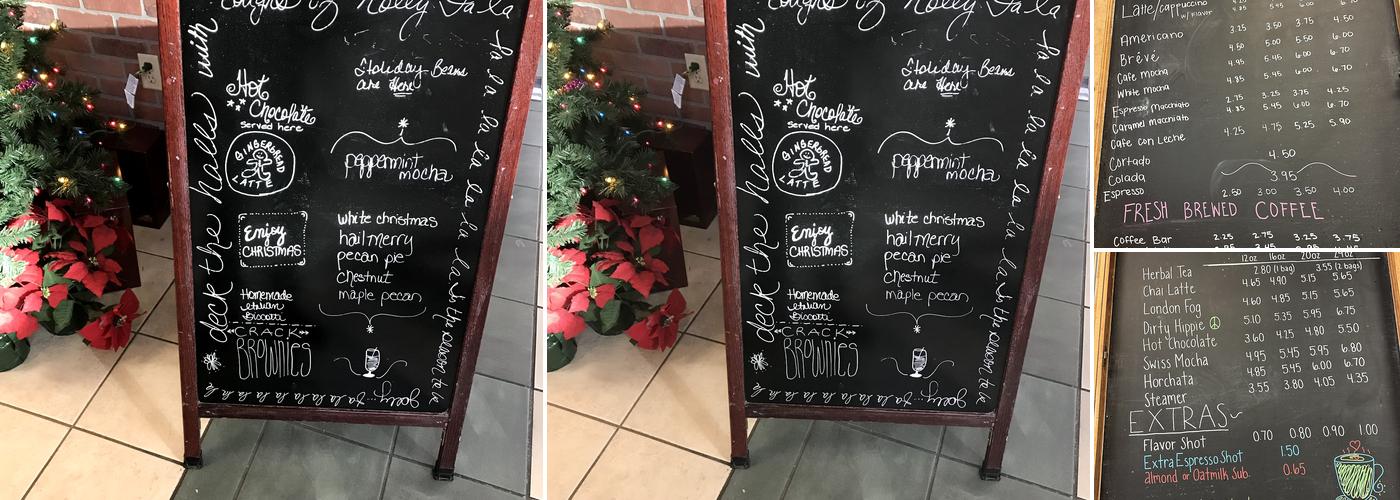 boughs of Holly Fa la
la la la la la la la la
deck the halls with
Hot
Chocolate
served here
Holiday Beans
are Here
GINGERBREAD
LATTE
peppermint
mocha
Enjoy
CHRISTMAS
white christmas
hail merry
pecan pie
chestnut
maple pecan
Homemade
italian
Biscotti
CRACK
BROWNIES
tis the season to be
jolly...fa la la la la la la la
boughs of Holly Fa la
la la la la la la la la
deck the halls with
Hot
Chocolate
served here
Holiday Beans
are Here
GINGERBREAD
LATTE
peppermint
mocha
Enjoy
CHRISTMAS
white christmas
hail merry
pecan pie
chestnut
maple pecan
Homemade
italian
Biscotti
CRACK
BROWNIES
tis the season to be
jolly...fa la la la la la la la
Latte/cappuccino
w/ flavor 4.35 5.45 6.00 6.70
Americano 3.25 3.50 3.75 4.50
Brévé 4.50 5.00 5.50 6.00
Cafe mocha 4.95 5.45 6.00 6.70
White mocha 4.85 5.45 6.00 6.70
Espresso Macchiato 2.75 3.25 3.75 4.25
Caramel macchiato 4.85 5.45 6.00 6.70
Cafe con Leche 4.25 4.75 5.25 5.90
Cortado 4.50
Colada 3.95
Espresso 2.50 3.00 3.50 4.00
FRESH BREWED COFFEE
Coffee Bar 2.25 2.75 3.25 3.75
12oz 16oz 20oz 24oz
Herbal Tea 2.80 (1 bag) 3.55 (2 bags)
Chai Latte 4.65 4.90 5.15 5.65
London Fog 4.60 4.85 5.15 5.65
Dirty Hippie 5.10 5.35 5.95 6.75
Hot Chocolate 3.60 4.25 4.80 5.50
Swiss Mocha 4.95 5.45 5.95 6.80
Horchata 4.85 5.45 6.00 6.70
Steamer 3.55 3.80 4.05 4.35
EXTRAS~
Flavor Shot 0.70 0.80 0.90 1.00
Extra Espresso Shot 1.50
almond or Oatmilk Sub. 0.65